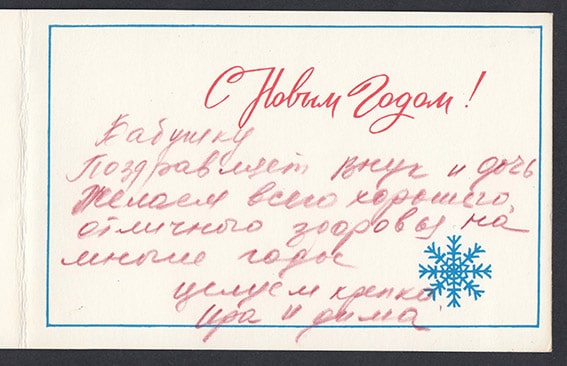 С Новым Годом!
Бабушку
Поздравляет внук и дочь
Желаем всего хорошего,
отличного здоровья на
многие годы
целуем крепко
Ира и Дима.